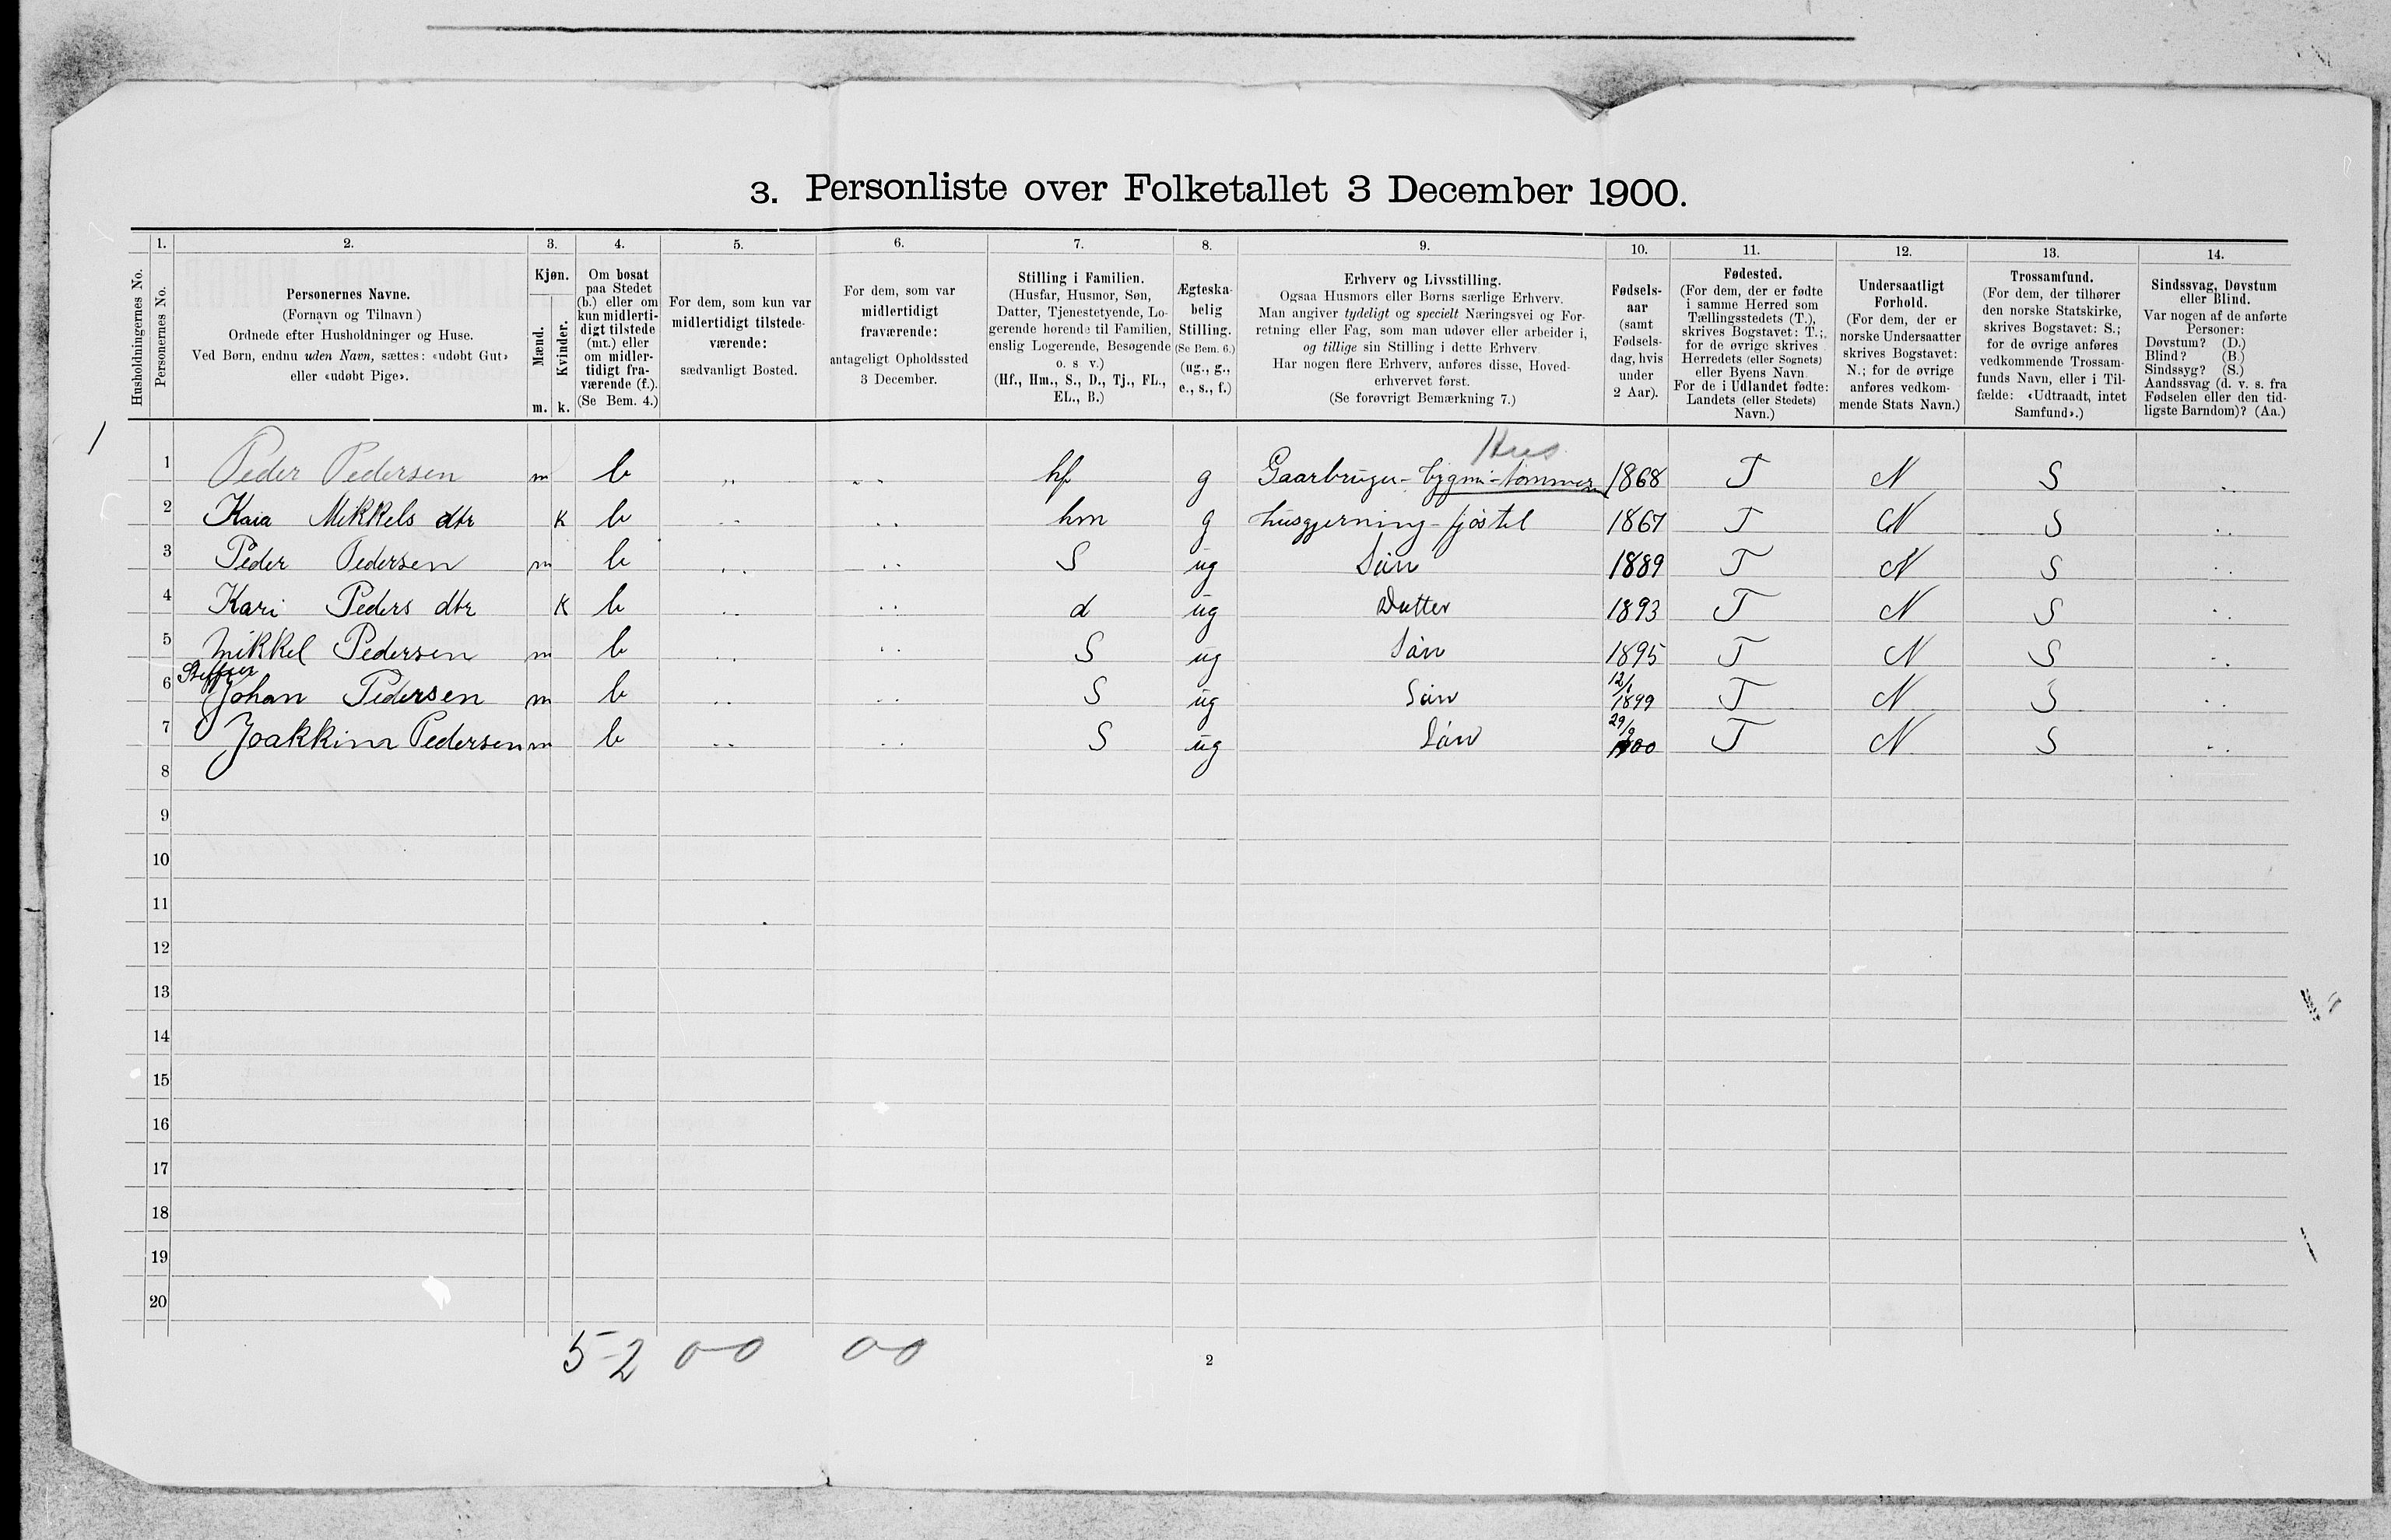 3. Personliste over Folketallet 3 December 1900.
Husholdningernes No.
1. Personernes No.
2. Personernes Navne.
(Fornavn og Tilnavn)
Ordnede efter Husholdninger og Huse.
Ved Børn, endnu uden Navn, sættes: «udøbt Gut»
eller «udøbt Pige».
3. Kjøn.
Mænd. m.
Kvinder. k.
4. Om bosat
paa Stedet
(b.) eller om
kun midlerti-
digt tilstede
(mt.) eller
om midler-
tidigt fra-
værende (f.).
(Se Bem. 4.)
5. For dem, som kun var
midlertidigt tilstede-
værende:
sædvanligt Bosted.
6. For dem, som var
midlertidigt
fraværende:
antageligt Opholdssted
3 December.
7. Stilling i Familien.
(Husfar, Husmor, Søn,
Datter, Tjenestetyende, Lo-
gerende hørende til Familien,
enslig Logerende, Besøgende
o. s v.)
(Hf., Hm., S., D., Tj., FL.,
EL., B.)
8. Ægteska-
belig
Stilling.
(Se Bem. 6.)
(ug., g.,
e., s., f.)
9. Erhverv og Livsstilling.
Ogsaa Husmors eller Børns særlige Erhverv.
Man angiver tydeligt og specielt Næringsvei og For-
retning eller Fag, som man udøver eller arbeider i,
og tillige sin Stilling i dette Erhverv
Har nogen flere Erhverv, anføres disse, Hoved-
erhvervet først.
(Se forøvrigt Bemærkning 7.)
10. Fødsels-
aar
(samt
Fødsels-
dag, hvis
under
2 Aar).
11. Fødested.
(For dem, der er fødte
i samme Herred som
Tællingsstedets (T.),
skrives Bogstavet: T.;
for de øvrige skrives
Herredets (eller Sognets)
eller Byens Navn.
For de i Udlandet fødte:
Landets (eller Stedets)
Navn.)
12. Undersaatligt
Forhold.
(For dem, der er
norske Undersaatter
skrives Bogstavet:
N.; for de øvrige
anføres vedkom-
mende Stats Navn.)
13. Trossamfund.
(For dem, der tilhører
den norske Statskirke,
skrives Bogstavet: S.;
for de øvrige anføres
vedkommende Trossam-
funds Navn, eller i Til-
fælde: «Udtraadt, intet
Samfund».)
14. Sindssvag, Døvstum
eller Blind.
Var nogen af de anførte
Personer:
Døvstum? (D.)
Blind? (B.)
Sindssyg? (S.)
Aandssvag (d. v. s. fra
Fødselen eller den tid-
ligste Barndom)? (Aa.)
1
Hus
1 Peder Pedersen m b hf g Gaarbruger- tømmer 1868 T N S
2 Kaia Mikkels dtr k b hm g husgjerning- fjøstel 1867 T N S
3 Peder Pedersen m b S ug Søn 1889 T N S
4 Kari Peders dtr k b d ug Datter 1893 T N S
5 Mikkel Pedersen m b S ug Søn 1895 T N S
6 Johan Pedersen m b S ug Søn 12/1 1899 T N S
7 Joakkim Pedersen m b S ug Søn 29/9 1900 T N S
8
9
10
11
12
13
14
15
16
17
18
19
20
5-2 0-0 0-0
2